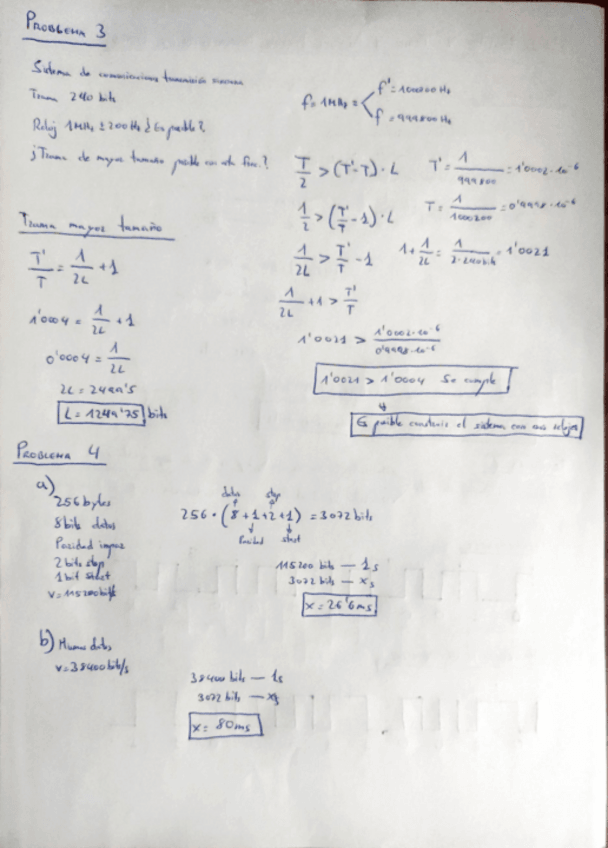 PROBLEMA 3
Sistema de comunicaciones transmisión síncrona
Trama 240 bits
Reloj 1MHz ± 200Hz ¿Es posible?
¿Trama de mayor tamaño posible con este
f = 1MHz = f' = 1000200 Hz
f = 999800 Hz
T/2 > (T' - T) · L
T' = 1/999800 = 1'0002·10^-6
1/2 > (T'/T - 1) · L
T = 1/1000200 = 0'9998·10^-6
1/2L > T'/T - 1
1 + 1/2L = 1/2·240bits = 1'0021
1/2L + 1 > T'/T
1'0021 > 1'0002·10^-6/0'9998·10^-6
1'0021 > 1'0004 Se cumple
Es posible construir el sistema con esos relojes
Trama mayor tamaño
T'/T = 1/2L + 1
1'0004 = 1/2L + 1
0'0004 = 1/2L
2L = 2499'5
L = 1249'75 bits
PROBLEMA 4
a)
256 bytes
8 bits datos
Paridad impar
2 bits stop
1 bit start
v = 115200 bit/s
datos stop
256 · (8 + 1 + 2 + 1) = 3072 bits
Paridad start
115200 bits — 1s
3072 bits — x s
x = 26'6 ms
b) Mismos datos
v = 38400 bit/s
38400 bits — 1s
3072 bits — x s
x = 80 ms